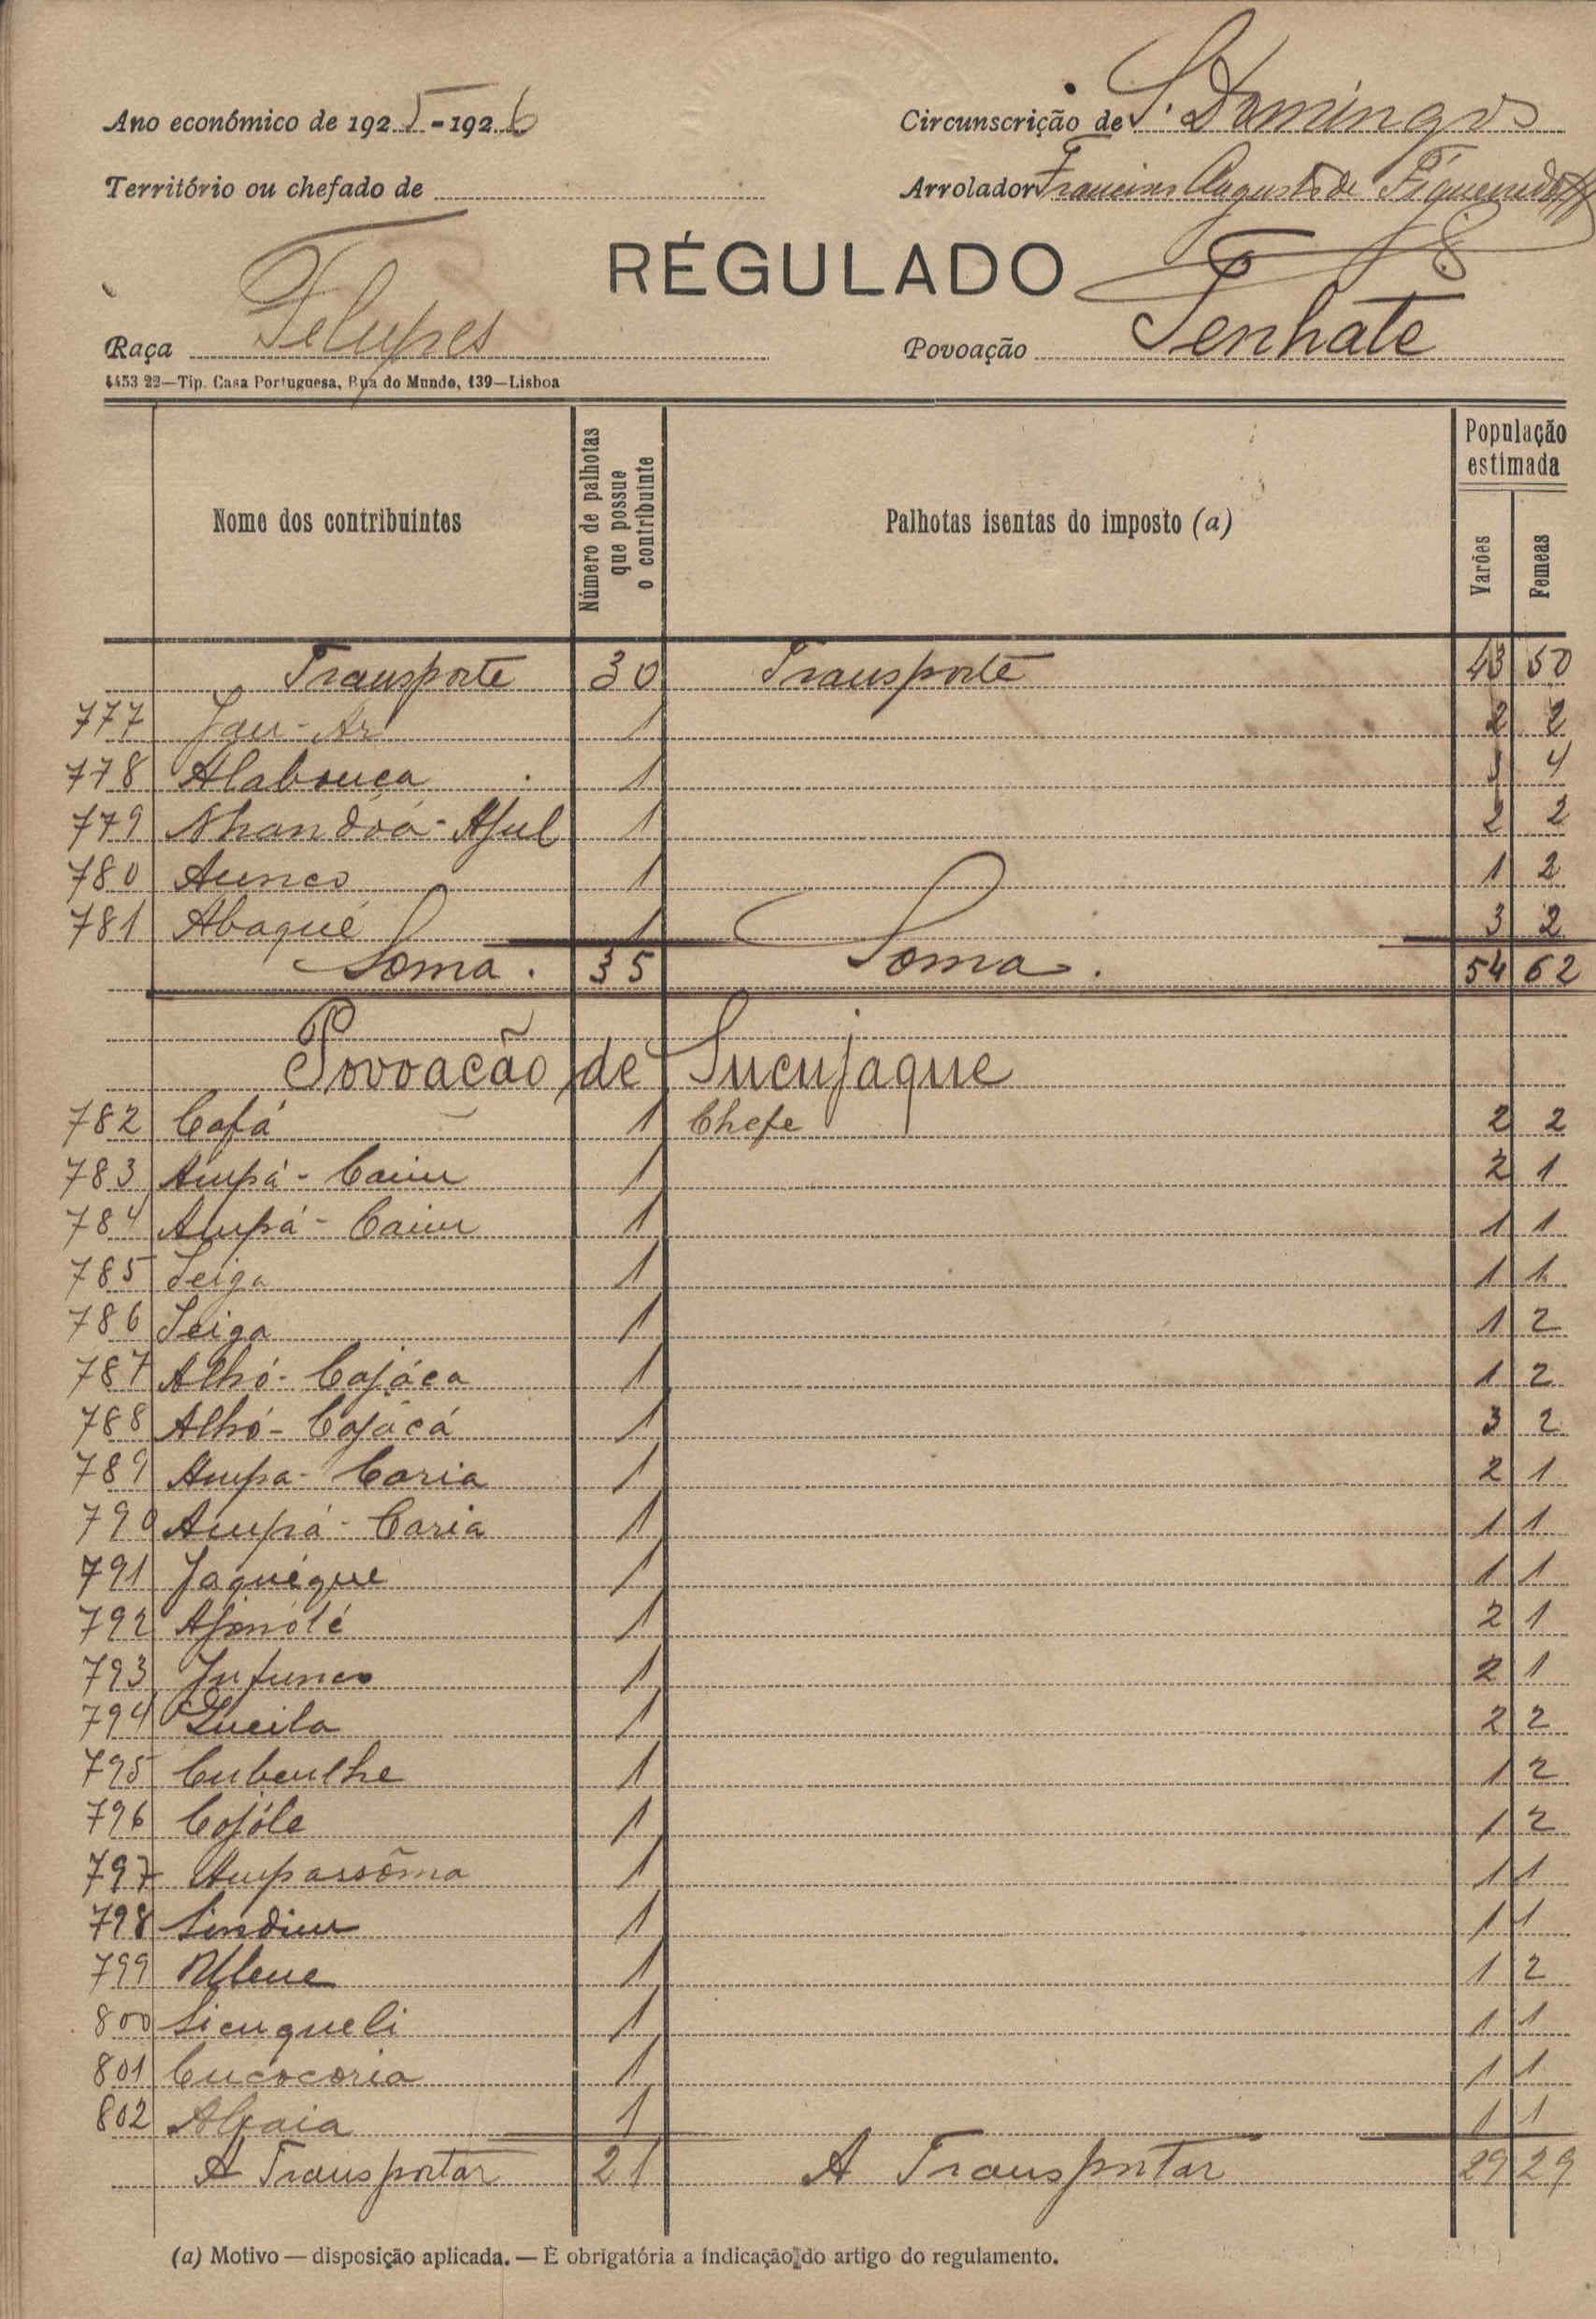 Ano económico de 1925-1926
Circunscrição de S. Domingos
Território ou chefado de
Arrolador Francisco Augusto de Figueiredo
RÉGULADO
Raça Felupes
Povoação Tenhate
4453 22—Tip. Casa Portuguesa, Rua do Mundo, 139—Lisboa
Nome dos contribuintes
Número de palhotas que possue o contribuinte
Palhotas isentas do imposto (a)
População estimada
Varões
Femeas
Transporte 30 Transporte 43 50
777 Jau-Ar 1 2 2
778 Alabouca 1 3 4
779 Nhandóá-Ajul 1 2 2
780 Aunco 1 1 2
781 Abaqué 1 3 2
Soma. 35 Soma. 54 62
Povoacão de Sucujaque
782 Cafá 1 Chefe 2 2
783 Ampá-Caiu 1 2 1
784 Ampá-Caiu 1 1 1
785 Seiga 1 1 1
786 Seiga 1 1 2
787 Alhó-Cajáca 1 1 2
788 Alhó-Cajácá 1 3 2
789 Ampa-Caria 1 2 1
790 Ampá-Caria 1 1 1
791 Jaquéque 1 1 1
792 1 2 1
793 1 2 1
794 Lucila 1 2 2
795 1 1 2
796 Cojóle 1 1 2
797 Ampassôma 1 1 1
798 1 1 1
799 1 1 2
800 Sicuqueli 1 1 1
801 Cucocoria 1 1 1
802 1 1 1
A Transportar 21 A Transportar 29 29
(a) Motivo — disposição aplicada. — É obrigatória a indicação do artigo do regulamento.